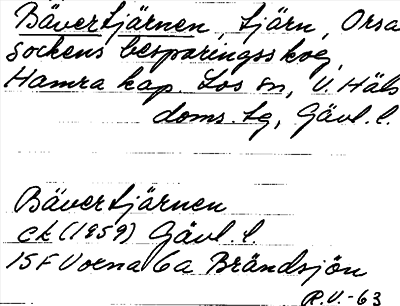 Bävertjärnen, tjärn, Orsa
sockens besparingsskog,
Hamra kap. Los sn, V. Häls
doms. tg, Gävl. l.
Bävertjärnen
ek (1959) Gävl. l.
15F Voxna 6a Brändsjön
R.V. -63